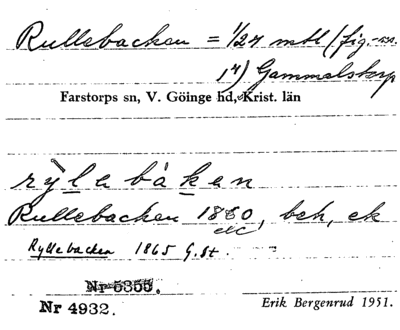 Rullebacken = 1/24 mtl (fig.-nr.
1⁴) Gammalstorp
Farstorps sn, V. Göinge hd, Krist. län
rỳlebåken
Rullebacken 1880, beb, ek
etc
Ryllebacken 1865 G.St.
Nr 5355.
Nr 4932.
Erik Bergenrud 1951.